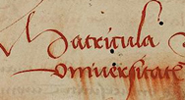 Matricula
Vniuersitatis